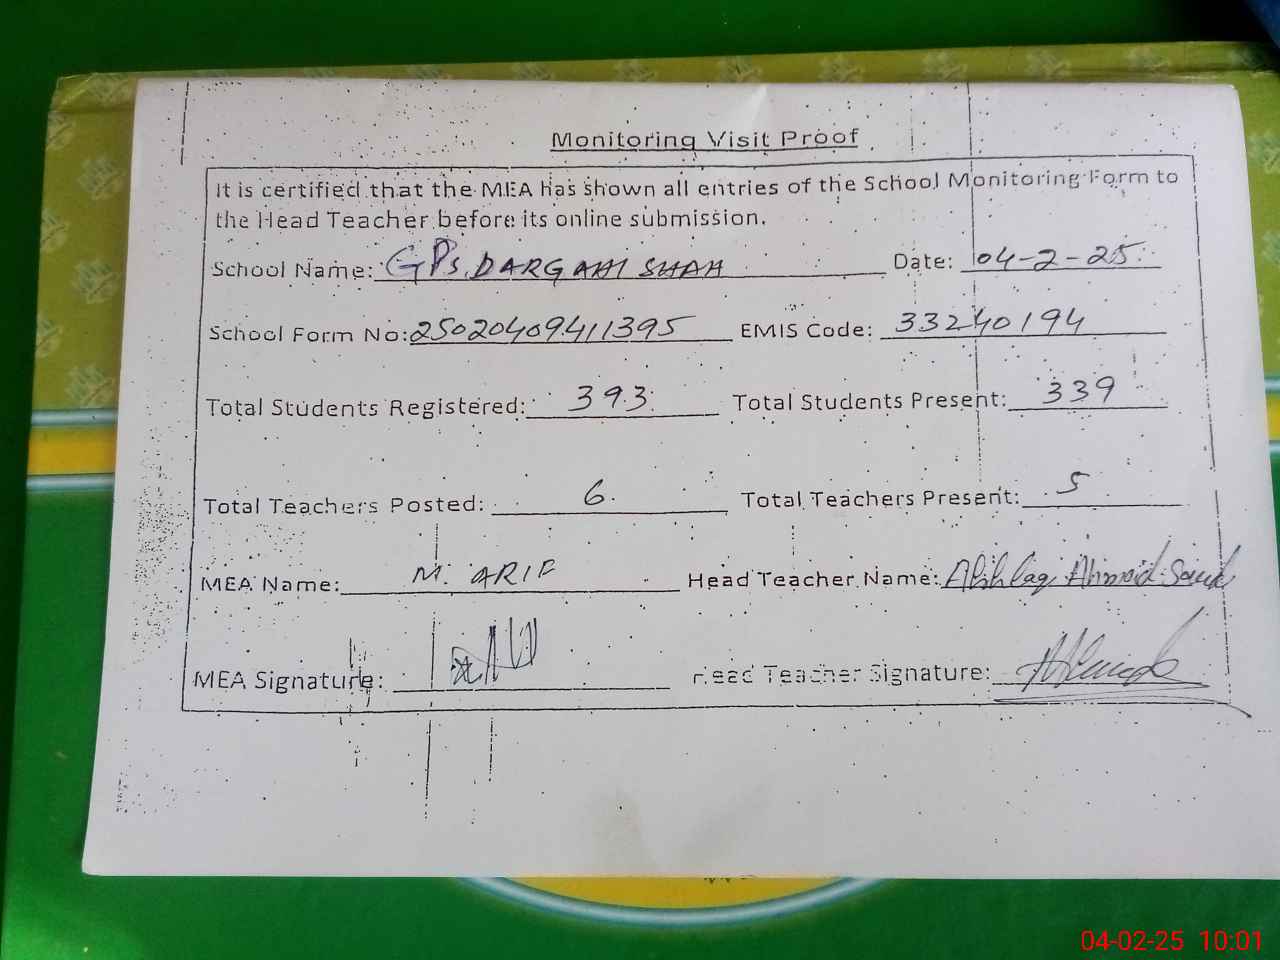 Monitoring Visit Proof
It is certified that the MEA has shown all entries of the School Monitoring Form to
the Head Teacher before its online submission.
School Name: GPs. DARGAHI SHAH Date: 04-2-25
School Form No: 25020409411395 EMIS Code: 33240194
Total Students Registered: 393 Total Students Present: 339
Total Teachers Posted: 6 Total Teachers Present: 5
MEA Name: M. ARIF Head Teacher Name: Ahmad
MEA Signature: Head Teacher Signature:
04-02-25 10:01